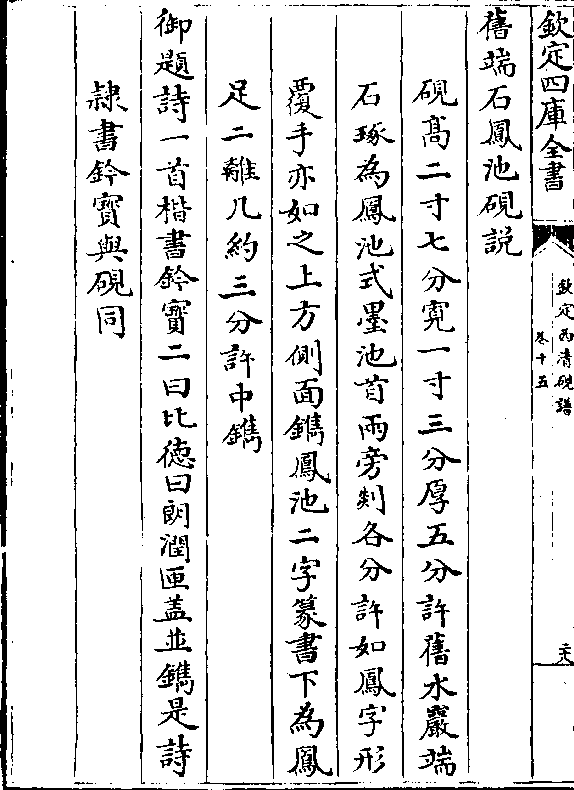 欽定四庫全書
欽定西清硯譜
卷十五
二六
舊端石鳳池硯説
硯髙二寸七分寛一寸三分厚五分許舊水巖端
石琢為鳳池式墨池首兩旁剡各分許如鳳字形
覆手亦如之上方側面鐫鳳池二字篆書下為鳳
足二離几約三分許中鐫
御題詩一首楷書鈐寳二曰比德曰朗潤匣蓋並鐫是詩
隷書鈐寳與硯同